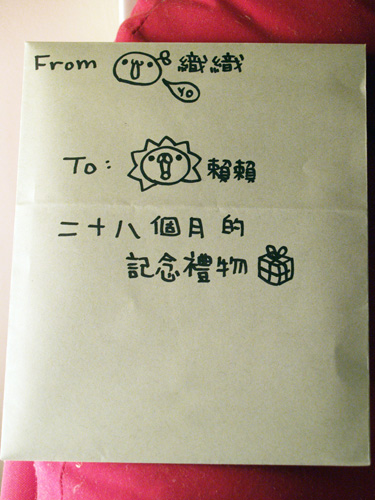 From 織織
YO
To: 賴賴
二十八個月的
記念禮物